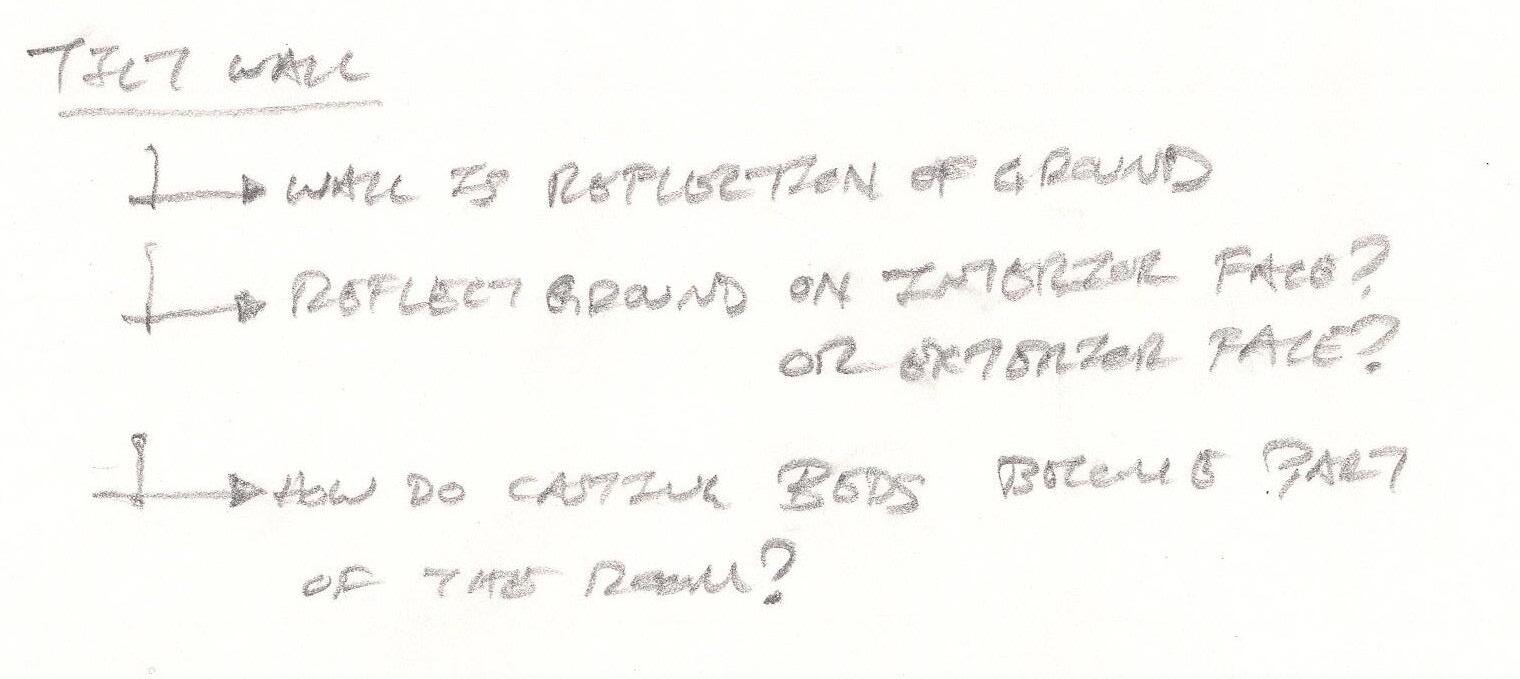 TILT WALL
WALL IS REFLECTION OF GROUND
REFLECT GROUND ON INTERIOR FACE?
OR EXTERIOR FACE?
HOW DO CASTING BEDS BECOME PART
OF THE ROOM?